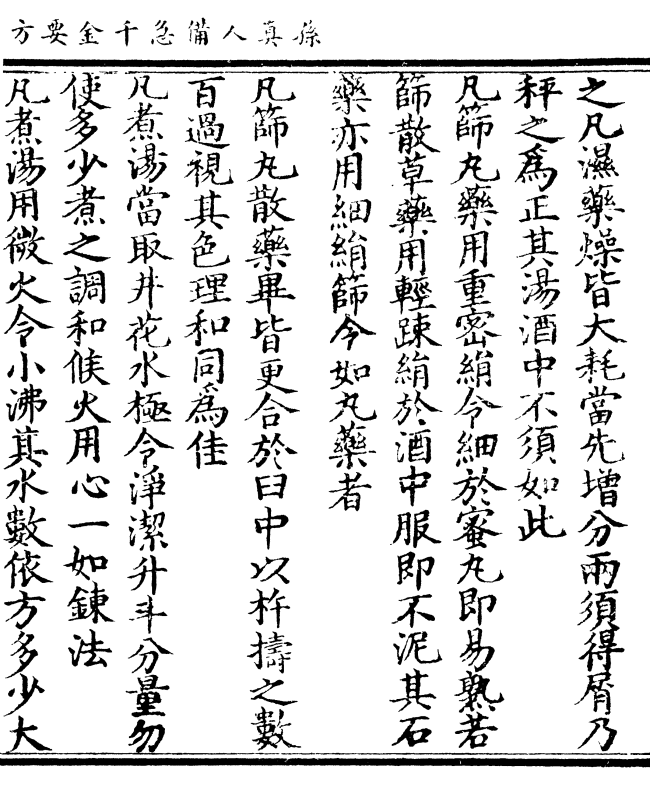 孫真人備急千金要方
之凡濕藥燥皆大耗當先增分兩須得屑乃
秤之為正其湯酒中不須如此
凡篩丸藥用重密絹令細於蜜丸即易熟若
篩散草藥用輕踈絹於酒中服即不泥其石
藥亦用細絹篩令如丸藥者
凡篩丸散藥畢皆更合於臼中以杵擣之數
百過視其色理和同為佳
凡煮湯當取井花水極令淨潔升斗分量勿
使多少煮之調和候火用心一如鍊法
凡煮湯用微火令小沸其水數依方多少大